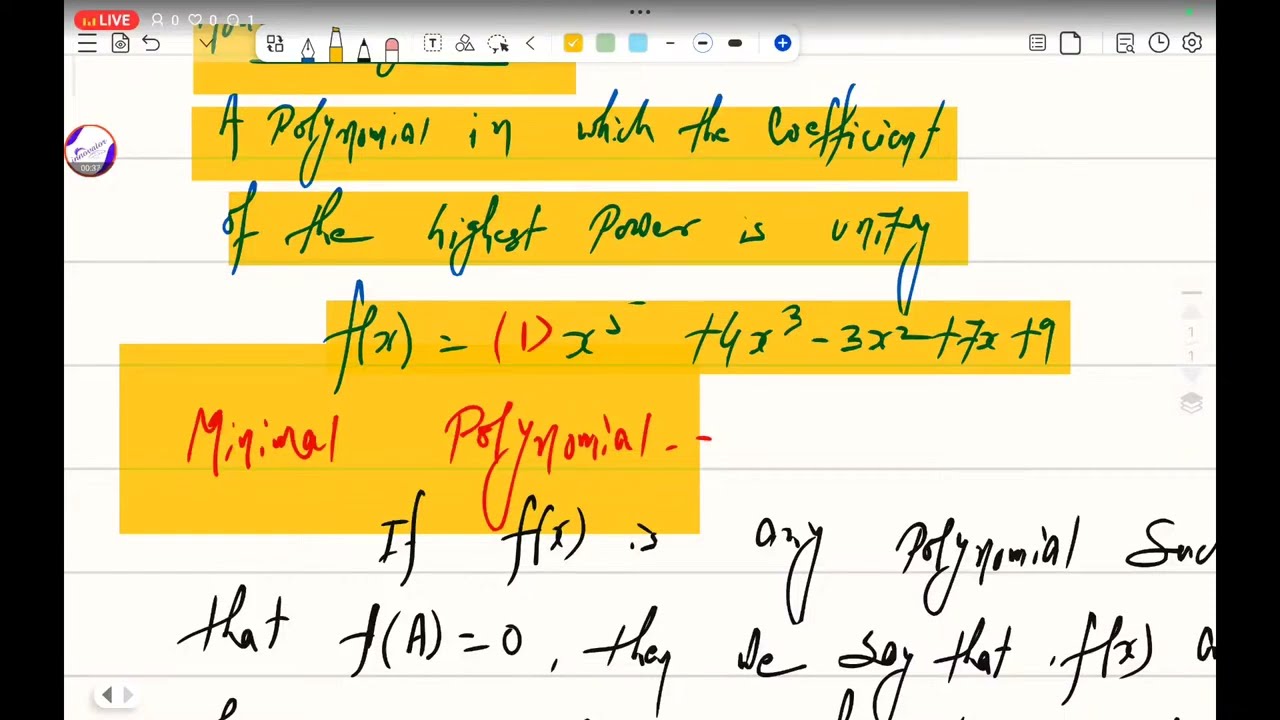 LIVE 0 0 1
A Polynomial in which the Coefficient
of the highest Power is unity
f(x) = (1) x⁵ + 4x³ - 3x² + 7x + 9
00:37
Minimal Polynomial. -
If f(x) is any Polynomial Suc
that f(A) = 0, then we say that f(x) a
1
1